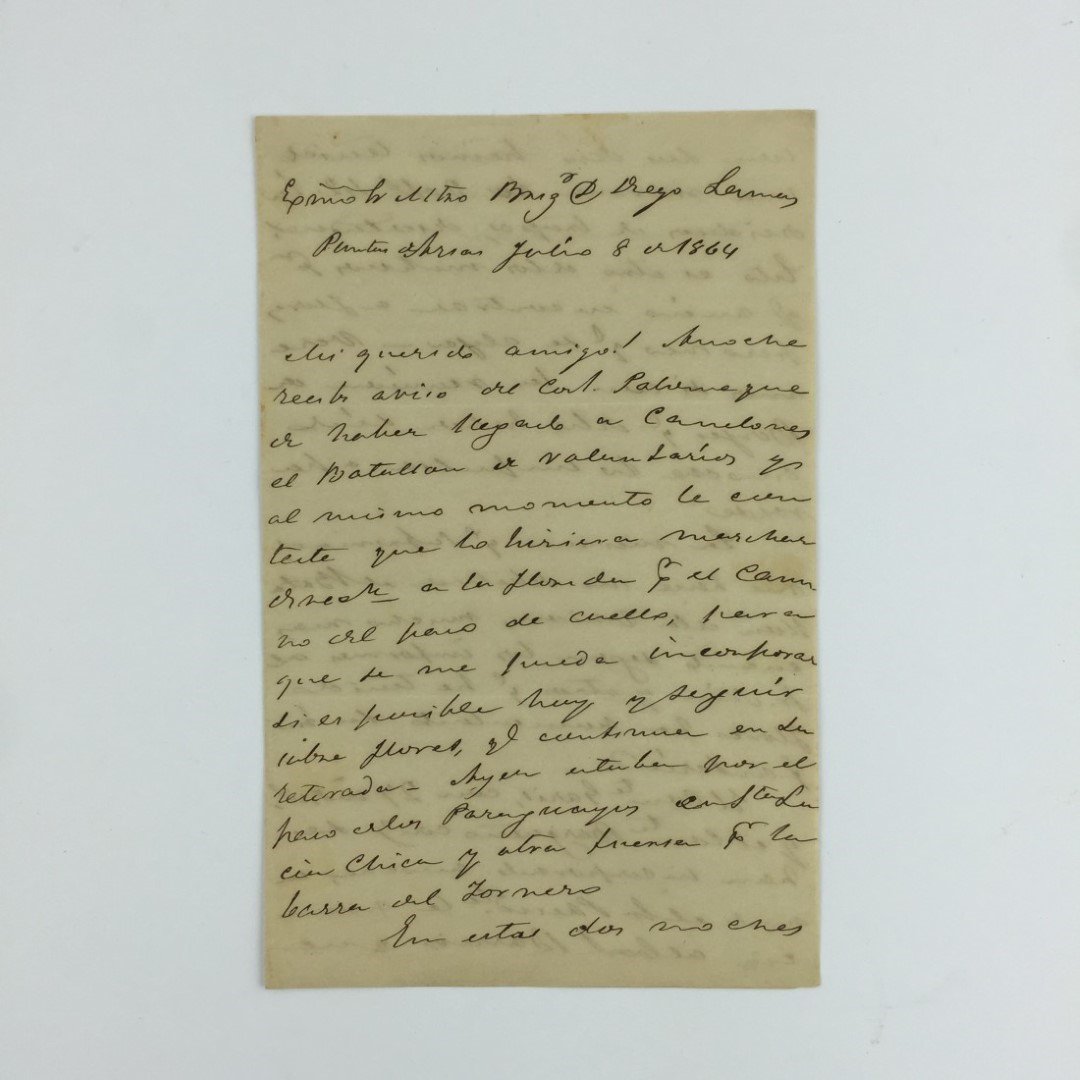 Exmo Sr Mtro Brigr D Diego Lamas
Puntas de Arias Julio 8 de 1864
Mi querido amigo! Anoche
recibi aviso del Corl. Palomeque
de haber llegado a Canelones
el Batallon de voluntarios y
al mismo momento le con
teste que lo hiciera marchar
a la Florida pr el Cami
no del paso de cuello, para
que se me pueda incorporar
si es posible hoy y seguir
sobre Flores, qe continua en su
retirada - Ayer estaba por el
paso de los Paraguayos en Sta Lu
cia Chica y otra fuerza pr la
barra del Tornero
En estas dos noches